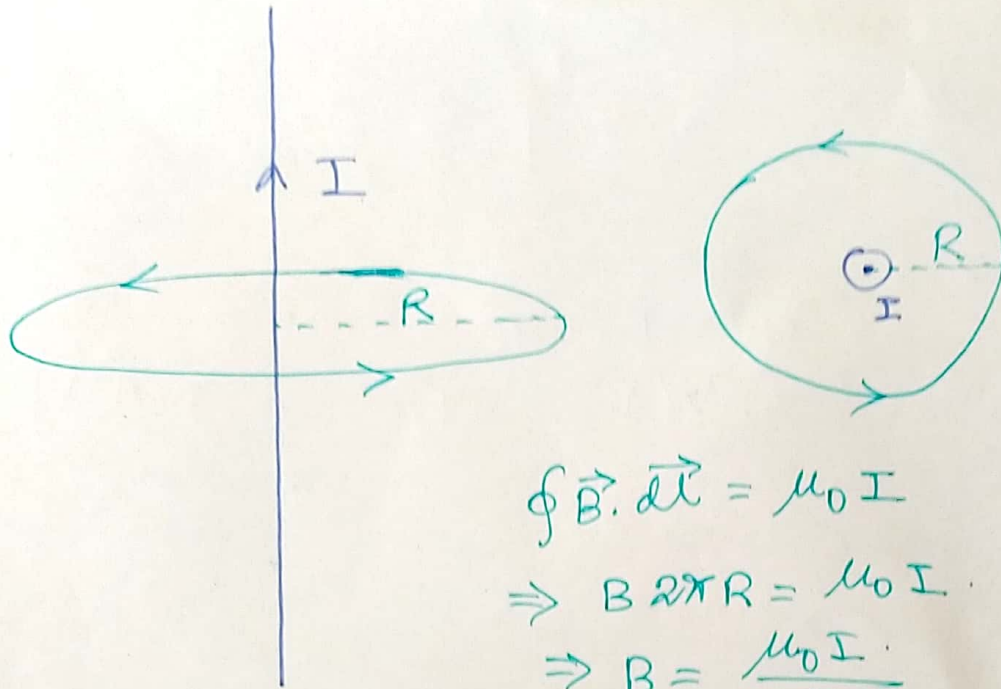 I
R
R
I
∮ B⃗ . dl⃗ = μ₀ I
⇒ B 2π R = μ₀ I .
⇒ B = μ₀ I .